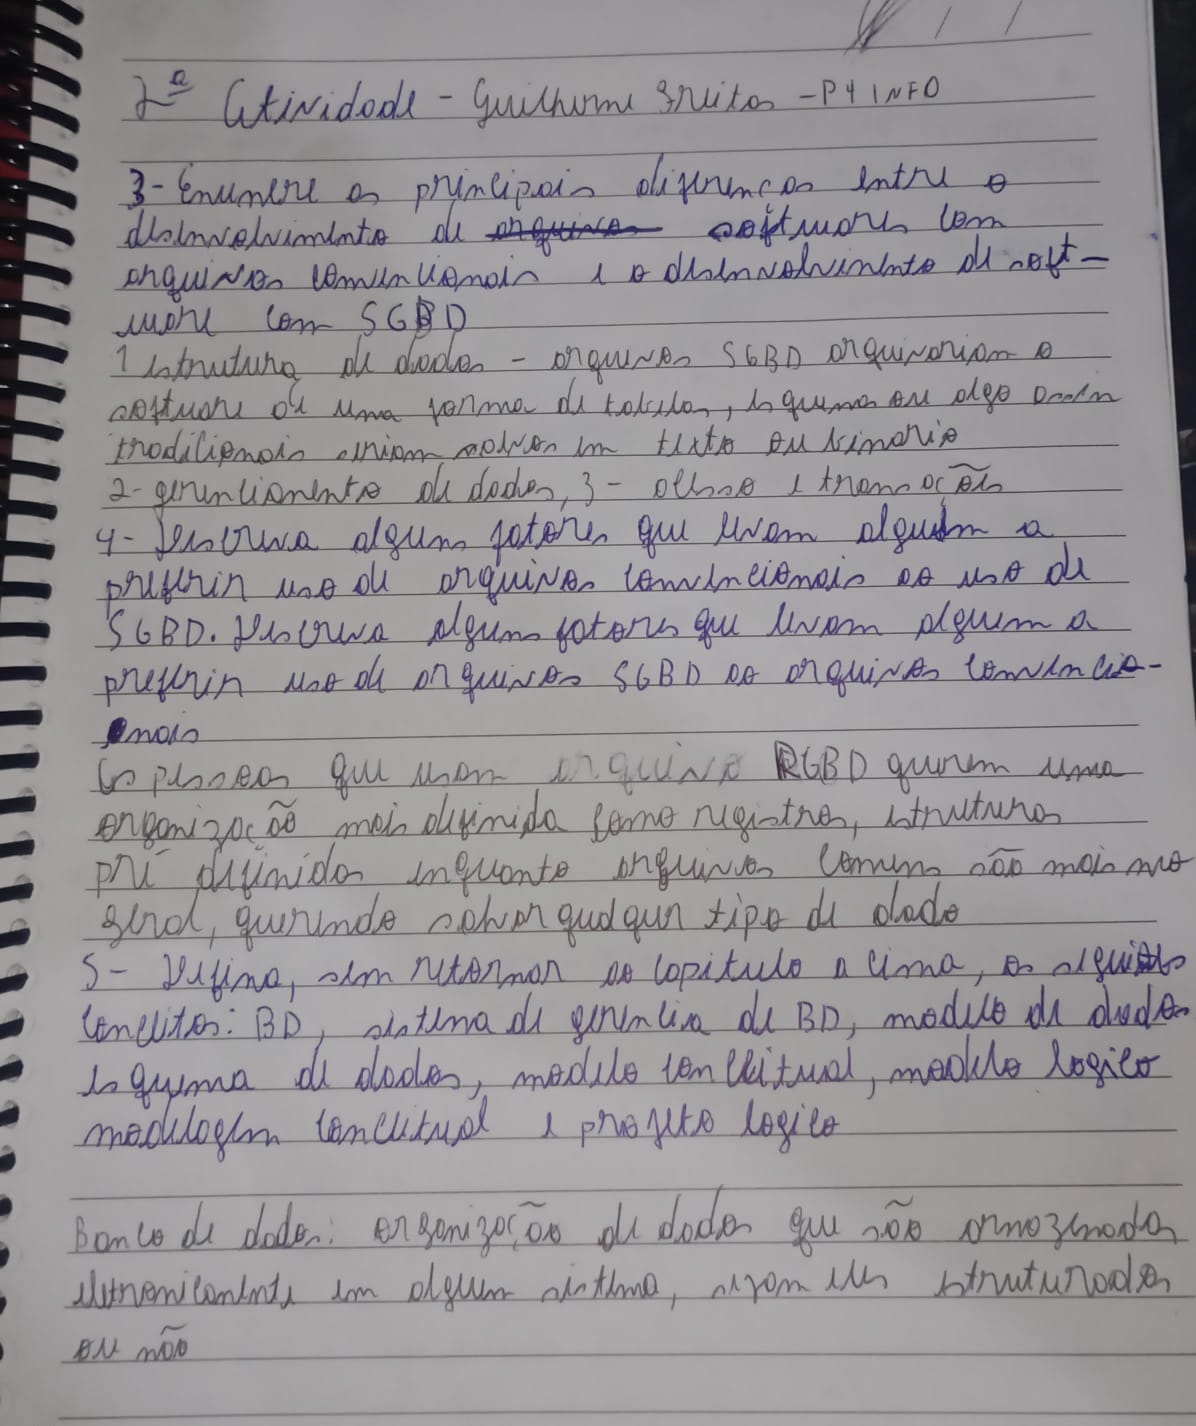 2ª Atividade - Guilherme Freitas - P4 INFO
3- Enumere as principais diferenças entre o
desenvolvimento de arquivos softwares com
arquivos convencionais e o desenvolvimento de soft-
ware com SGBD
1 estrutura de dados - arquivos SGBD arquivariam o
software de uma forma de tabelas, esquema ou algo assim
tradicionais seriam salvos em texto ou binario
2- gerenciamento de dados, 3- acesso e transações
4- Descreva alguns fatores que levam alguém a
preferir uso de arquivos convencionais ao uso de
SGBD. Descreva alguns fatores que levam alguem a
preferir uso de arquivos SGBD ao arquivos convencio-
nais
As pessoas que usam arquivo RGBD querem uma
organização mais definida como registros, estruturas
pré definidas enquanto arquivos comuns são mais no
geral, querendo salvar qualquer tipo de dado
5- Defina, sem retornar ao capitulo a cima, os seguintes
conceitos: BD, sistema de gerencia de BD, modelo de dados
esquema de dados, modelo conceitual, modelo logico
modelagem conceitual e projeto logico
Banco de dados: organização de dados que são armazenados
eletronicamente em algum sistema, sejam eles estruturados
ou não